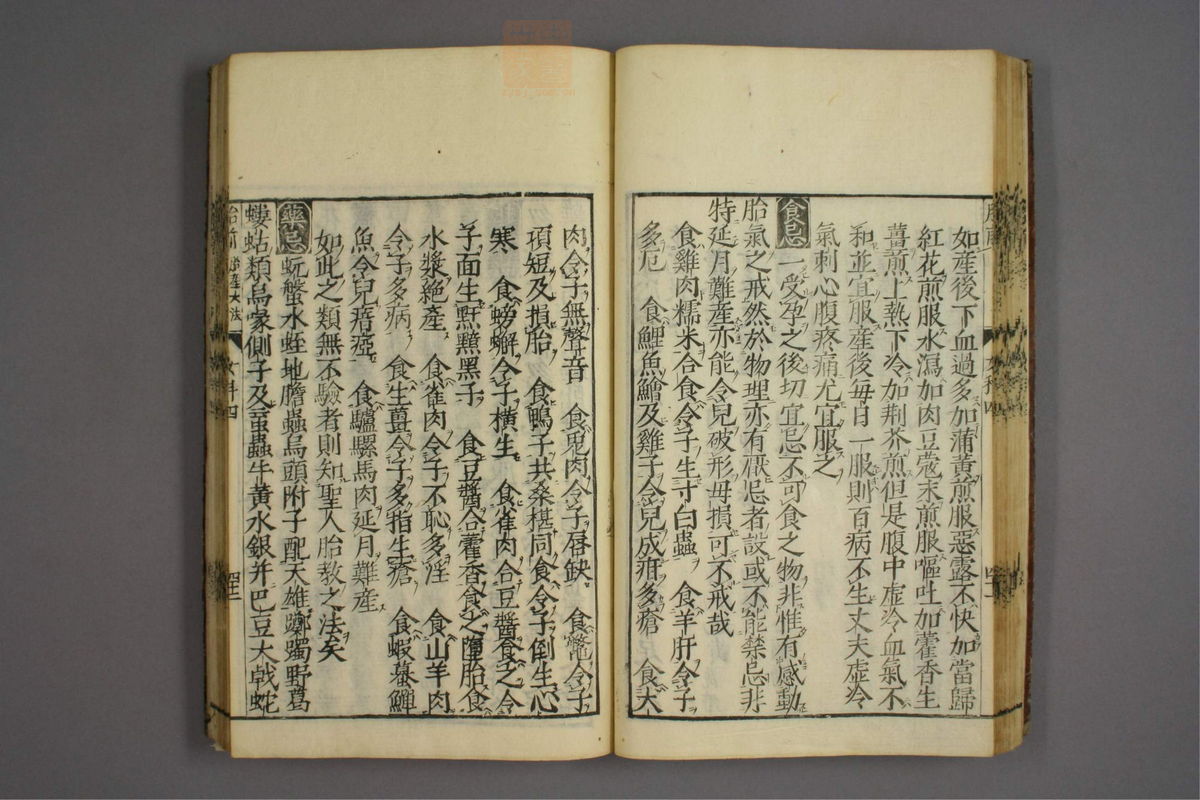 如産後下血過多加蒲黄煎服惡露不快加當歸
紅花煎服水瀉加肉豆蔻末煎服嘔吐加藿香生
薑煎上熱下冷加荆芥煎但是腹中虚冷血氣不
和並宜服産後毎日一服則百病不生丈夫虚冷
氣刺心腹疼痛尤宜服之
食忌 一受孕之後切宜忌不可食之物非惟有感動
胎氣之戒然於物理亦有厭忌者設或不能禁忌非
特延月難産亦能令兒破形毋損可不戒哉
食雞肉糯米合食令子生寸白蟲 食羊肝令子
多厄 食鯉魚鱠及雞子令兒成疳多瘡 食犬
肉令子無聲音 食兎肉令子唇缺 食鼈令子
項短及損胎 食鴨子共桑椹同食令子倒生心
寒 食螃蠏令子横生 食雀肉合豆醬食之令
子面生䵟䵳黑子 食豆醬合藿香食之墮胎食
水漿絶産 食雀肉令子不恥多淫 食山羊肉
令子多病 食生薑令子多指生瘡 食蝦蟇鱓
魚令兒瘖瘂 食驢騾馬肉延月難産
如此之類無不驗者則知聖人胎教之法矣
藥忌 蚖蟹水蛭地膽蟲烏頭附子配天雄躑躅野葛
螻蛄類烏喙側子及蝱蟲牛黄水銀并巴豆大戟蛇
胎前 女科四